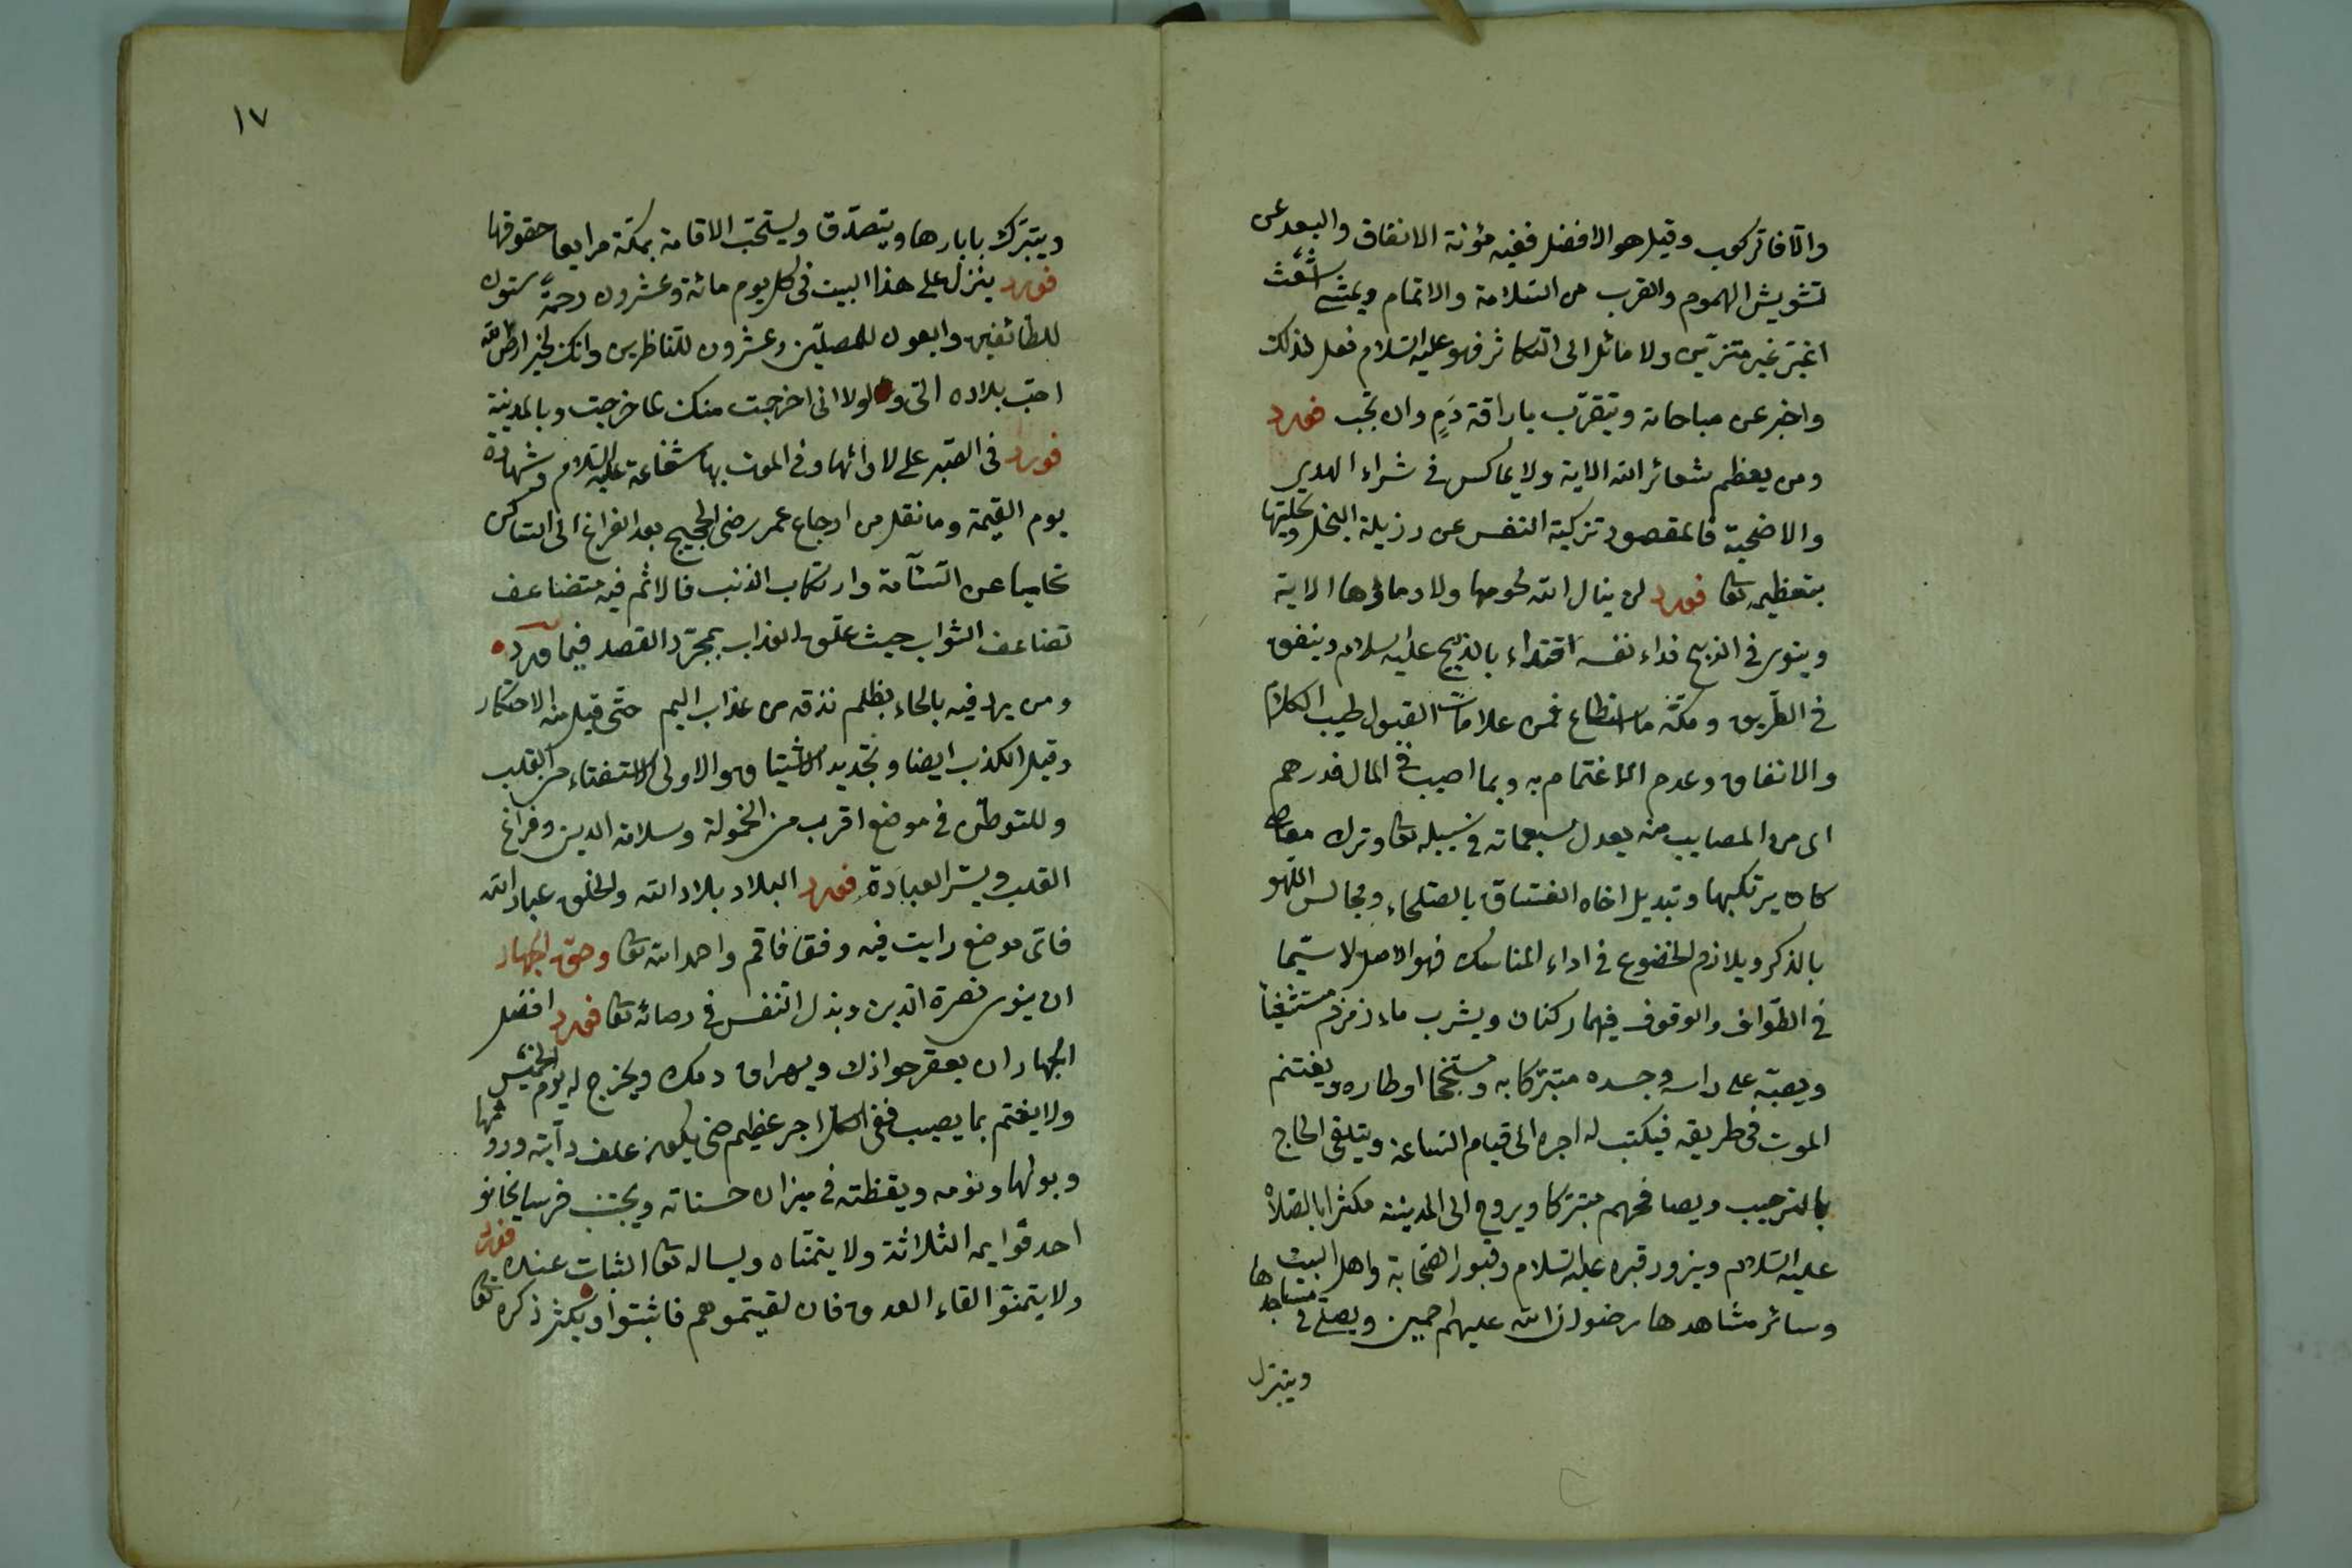 والا فاتركوب وقيل هو الافضل ففيه مؤنة الانفاق والبعد عن
تشويش الهموم والقرب من السلامة والاتمام ويمشى اشعث
اغبر غير متزين ولا مائل الى التكاثر فهو عليه السلام فعل لذلك
واخبر عن مباحاته ويتقرب باراقة دم وان لم يجب فورد
ومن يعظم شعائر الله الاية ولا يماكس فى شراء الهدى
والاضحية فالمقصود تزكية النفس عن رزيلة البخل وتحليتها
بتعظيم تعا فورد لن ينال الله لحومها ولا دماؤها الاية
وينوى فى الذبح فداء نفسه اقتداء بالذبيح عليه السلام وينفق
فى الطريق ومكة ما استطاع فمن علامات القبول طيب الكلام
والانفاق وعدم الاغتمام به وبما اصيب فى المال فدرهم
اى من المصايب منه يعدل سبعمائة فى سبيله تعا وترك معاص
كان يرتكبها وتبديل اخاه الفساق بالصلحاء ومجالس اللهو
بالذكر ويلازم الخضوع فى اداء المناسك فهو الاصل لا سيما
فى الطواف والوقوف فيهما ركنان ويشرب ماء زمزم مستشفيا
ويصبه على راسه وجسده متبركا به ومستنجحا اوطاره ويغتنم
الموت فى طريقه فيكتب له اجره الى قيام الساعة ويتلقى الحاج
بالترحيب ويصافحهم متبركا ويروح الى المدينة مكثرا بالصلاة
عليه السلام ويزور قبره عليه السلام وقبور الصحابة واهل البيت
وسائر مشاهدها رضوان الله عليهم اجمعين ويصلى فى مساجدها
ويتبرك
١٧
ويتبرك بابارها ويتصدق ويستحب الاقامة بمكة مراعيا حقوقها
فورد ينزل على هذا البيت فى كل يوم مائة وعشرون رحمة ستون
للطائفين واربعون للمصلين وعشرون للناظرين وانك لخير ارض الله
احب بلاده الى ولولا انى اخرجت منك لما خرجت وبالمدينة
فورد فى الصبر على لاوائها وفى الموت بها شفاعة عليه السلام وشهادة
يوم القيمة وما نقل من ارجاع عمر رضى الحجيج بعد الفراغ الى
تحاميا عن السآمة وارتكاب الذنب فالاثم فيه متضاعف
تضاعف الثواب حيث علق العذاب بمجرد القصد فيما ورد
ومن يرد فيه بالحاد بظلم نذقه من عذاب اليم حتى قيل منه الاحتكار
وقيل الكذب ايضا وتجديد الاشتياق والاولى الاستفتاء من القلب
وللتوطن فى موضع اقرب من الخمولة وسلامة الدين وفراغ
القلب ويسر العبادة فورد البلاد بلاد الله والخلق عباد الله
فاى موضع رايت فيه رفقا فاقم واحمد الله تعا وحق الجهاد
ان ينوى نصرة الدين وبذل النفس فى رضائه تعا فورد افضل
الجهاد ان يعقر جوادك ويهراق دمك ويخرج له يوم الخميس
ولا يغتم بما يصيب ففى الكل اجر عظيم حتى يكون علف دابته وروثها
وبولها ونومه ويقظته فى ميزان حسناته ويجتنب فرسا يخالف
احد قوايمه الثلاثة ولا يتمناه ويساله تعا الثبات عنده فورد
ولا يتمنوا لقاء العدو فان لقيتموهم فاثبتوا ويكثر ذكره تعا